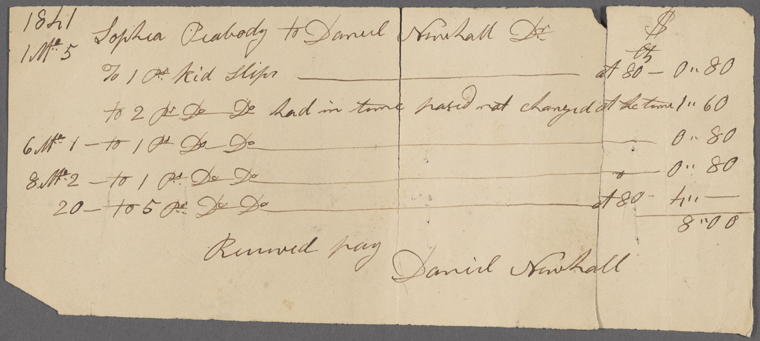 1841 $
1 Mo. 5 Sophia Peabody to Daniel Newhall Dr. cts
To 1 pr kid slips at 80 — 0 " 80
to 2 pr Do Do had in time pased not charged at the time 1 " 60
6 Mo. 1 — to 1 pr Do Do 0 " 80
8 Mo. 2 — to 1 pr Do Do " 0 " 80
20 — to 5 pr Do Do at 80 4 " —
8 " 00
Received pay
Daniel Newhall